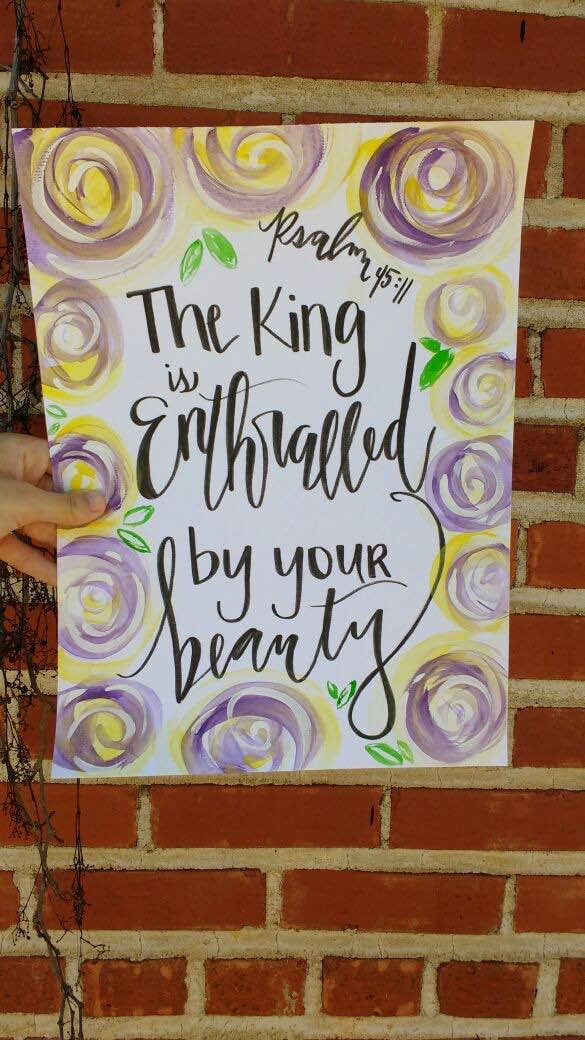 Psalm 45:11
The King
is
Enthralled
by your
beauty